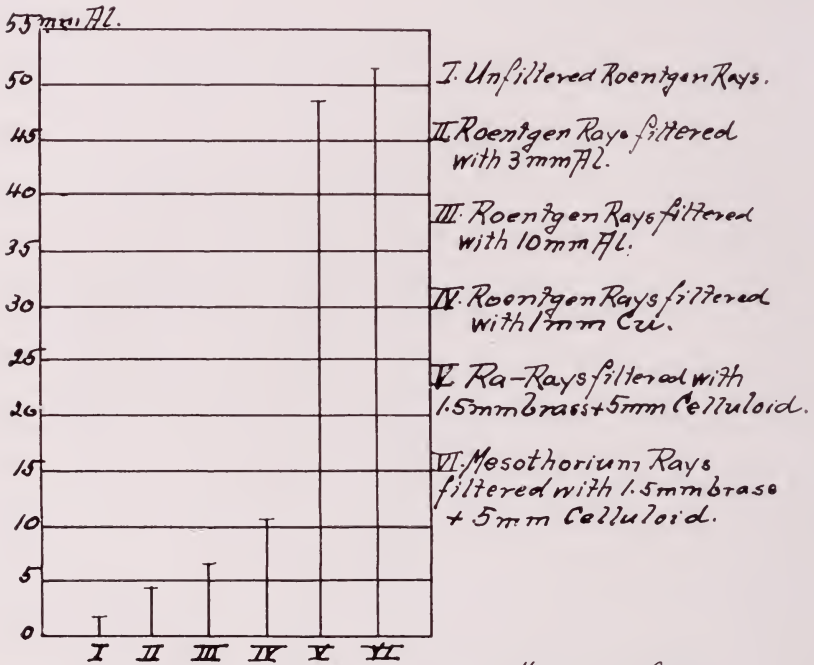 55 mm. Al.
50
45
40
35
30
25
20
15
10
5
0
I II III IV V VI
I. Unfiltered Roentgen Rays.
II. Roentgen Rays filtered
with 3mm Al.
III. Roentgen Rays filtered
with 10mm Al.
IV. Roentgen Rays filtered
with 1mm Cu.
V. Ra-Rays filtered with
1.5mm brass + 5mm Celluloid.
VI. Mesothorium Rays
filtered with 1.5mm brass
+ 5mm Celluloid.